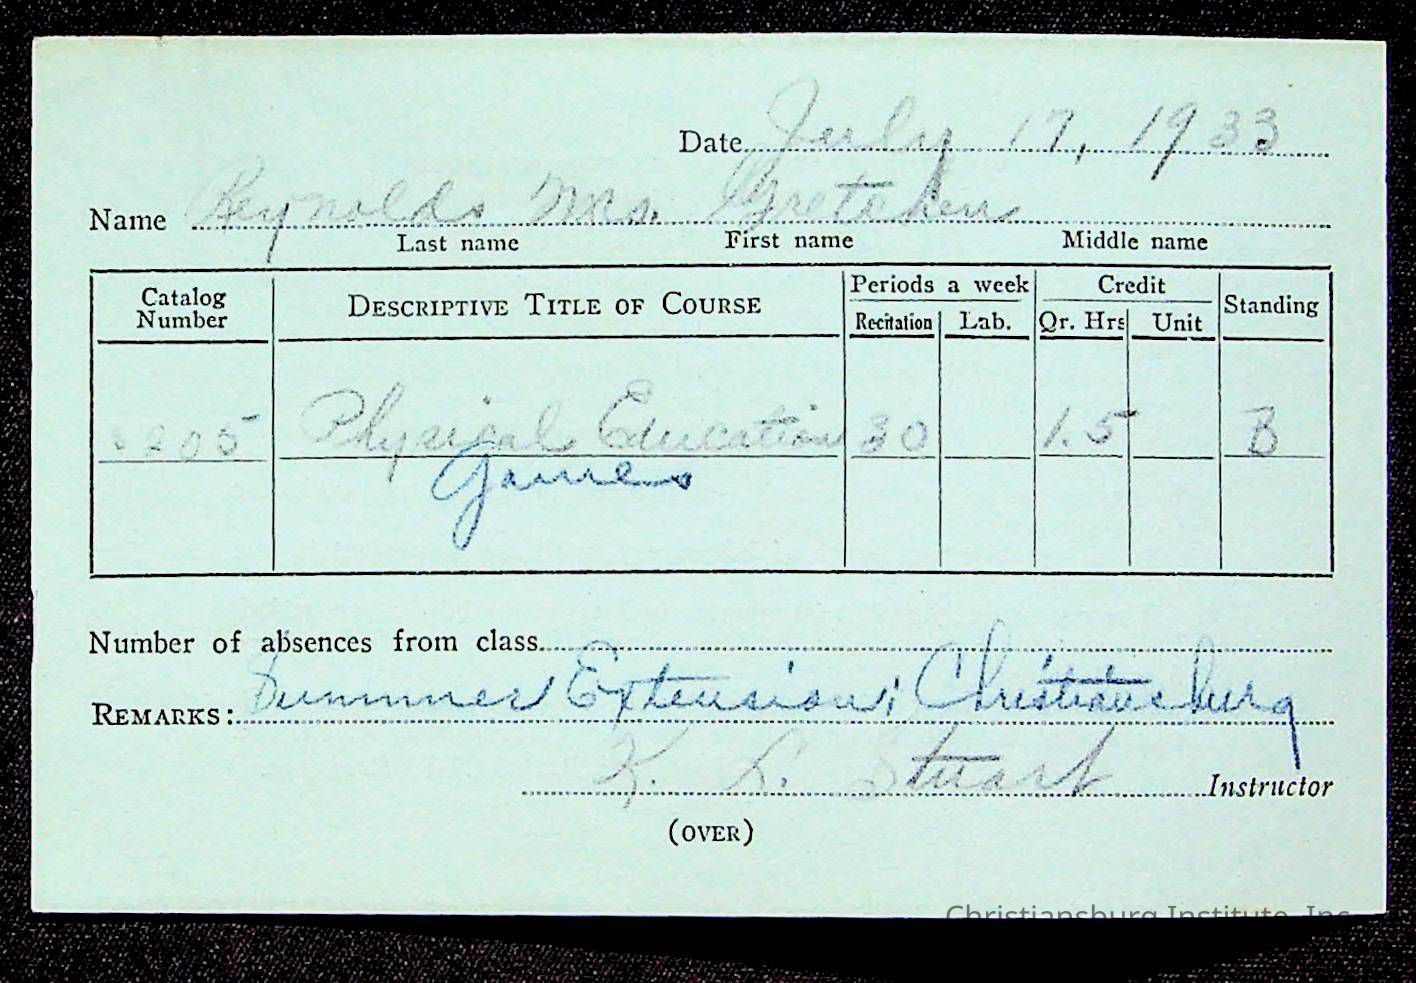 Date July 17, 1933
Name Reynolds Mrs. Gretchen
Last name First name Middle name
Catalog Number DESCRIPTIVE TITLE OF COURSE Periods a week Credit Standing
Recitation Lab. Qr. Hrs Unit
s205 Physical Education 30 1.5 B
Games
Number of absences from class
REMARKS: Summer Extension; Christiansburg
K. L. Stuart Instructor
(OVER)
Christiansburg Institute, Inc.